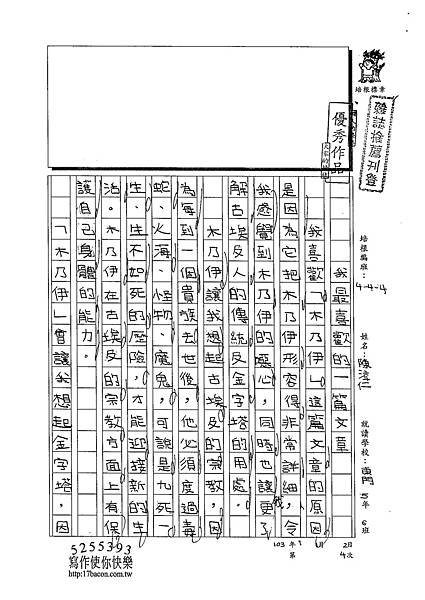 培根標章
雜誌推薦刊登
優秀作品
培根編班：4-4-4
姓名：陳
就讀學校：西門 5年 6班
103年 月 2日
第 4次
我最喜歡的一篇文章
我喜歡「木乃伊」這篇文章的原因
是因為它把木乃伊形容得非常詳細，令
我感覺到木乃伊的噁心，同時也讓我更了
解古埃及人的傳統及金字塔的用處。
木乃伊讓我想起古埃及的宗教，因
為每到一個貴族去世後，他必須度過毒
蛇、火海、怪物、魔鬼，可說是九死一
生、生不如死的歷險，才能迎接新的生
活。木乃伊在古埃及的宗教方面上有保
護自己身體的能力。
「木乃伊」會讓我想起金字塔，因
5255393
寫作使你快樂
http://17bacon.com.tw